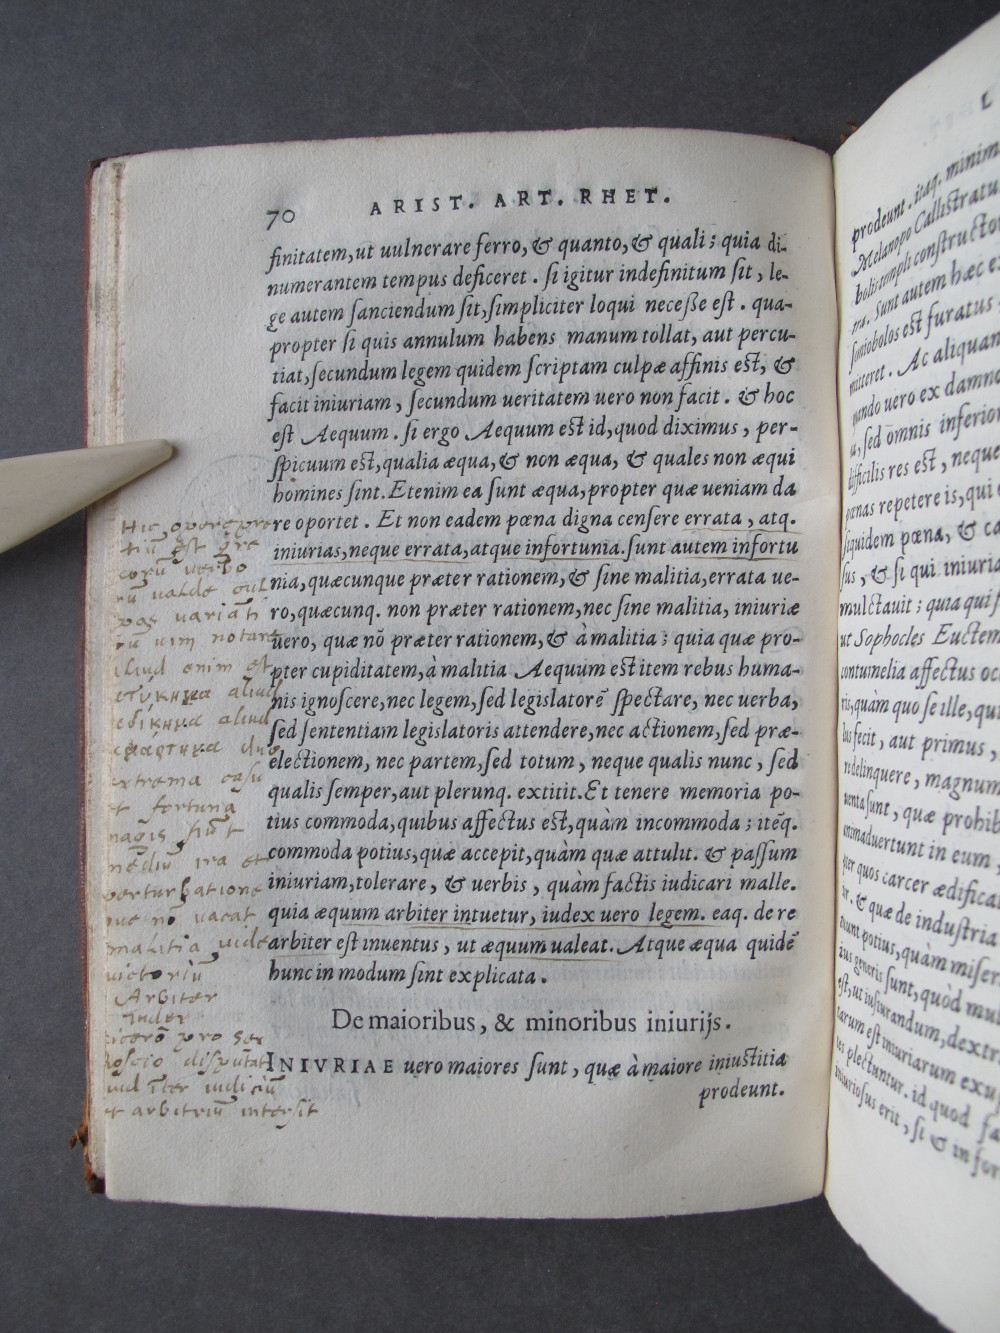 70 ARIST. ART. RHET.
finitatem, ut uulnerare ferro, & quanto, & quali; quia di-
numerantem tempus deficeret. si igitur indefinitum sit, le-
ge autem sanciendum sit, simpliciter loqui necesse est. qua-
propter si quis annulum habens manum tollat, aut percu-
tiat, secundum legem quidem scriptam culpæ affinis est, &
facit iniuriam, secundum ueritatem uero non facit. & hoc
est Aequum. si ergo Aequum est id, quod diximus, per-
spicuum est, qualia æqua, & non æqua, & quales non æqui
homines sint. Etenim ea sunt æqua, propter quæ ueniam da
re oportet. Et non eadem pœna digna censere errata, atq.
iniurias, neque errata, atque infortunia. sunt autem infortu
nia, quæcunque præter rationem, & sine malitia, errata ue-
ro, quæcunq. non præter rationem, nec sine malitia, iniuriæ
uero, quæ nõ præter rationem, & à malitia; quia quæ pro-
pter cupiditatem, à malitia Aequum est item rebus huma-
nis ignoscere, nec legem, sed legislatorẽ spectare, nec uerba,
sed sententiam legislatoris attendere, nec actionem, sed præ-
electionem, nec partem, sed totum, neque qualis nunc, sed
qualis semper, aut plerunq. extitit. Et tenere memoria po-
tius commoda, quibus affectus est, quàm incommoda; itẽq.
commoda potius, quæ accepit, quàm quæ attulit. & passum
iniuriam, tolerare, & uerbis, quàm factis iudicari malle.
quia æquum arbiter intuetur, iudex uero legem. eaq. de re
arbiter est inuentus, ut æquum ualeat. Atque æqua quidẽ
hunc in modum sint explicata.
De maioribus, & minoribus iniurijs.
INIVRIAE uero maiores sunt, quæ à maiore iniustitia
prodeunt.
Hic opere pre
tiũ est græ
corũ uerbo
rũ ualde
uariãti
uim notare
aliud enim est
aliud
aliud
duo
extrema casu
et fortuna
magis fiũt
mediũ ira et
perturbatione
que nõ uacat
malitia uide
uictoriũ
Arbiter
iuder
cicerõ pro
roscio disputat
quid ĩter iudiciũ
et arbitriũ intersit
prodeunt. itaq. minim
Melanopo Callistratu
bolis templi constructo
ra. Sunt autem hæc e
est furatus
mitteret. Ac aliquan
uando uero ex damno
a, sed omnis inferior
difficilis res est, neque
pœnas repetere is, qui
siquidem pœna, & ca
sus, & si qui iniuria
mulctauit; quia qui
ut Sophocles Euctem
contumelia affectus oc
ris, quàm quo se ille, qui
bus fecit, aut primus,
delinquere, magnum
uenta sunt, quæ prohib
animaduertunt in eum,
quos carcer ædifica
& quæ de industria
potius, quàm miser
generis sunt, quòd mul
est, ut iusiurandum, dextr
tarum est iniuriarum exup
plectuntur. id quod fa
iniuriosus erit, si & in for